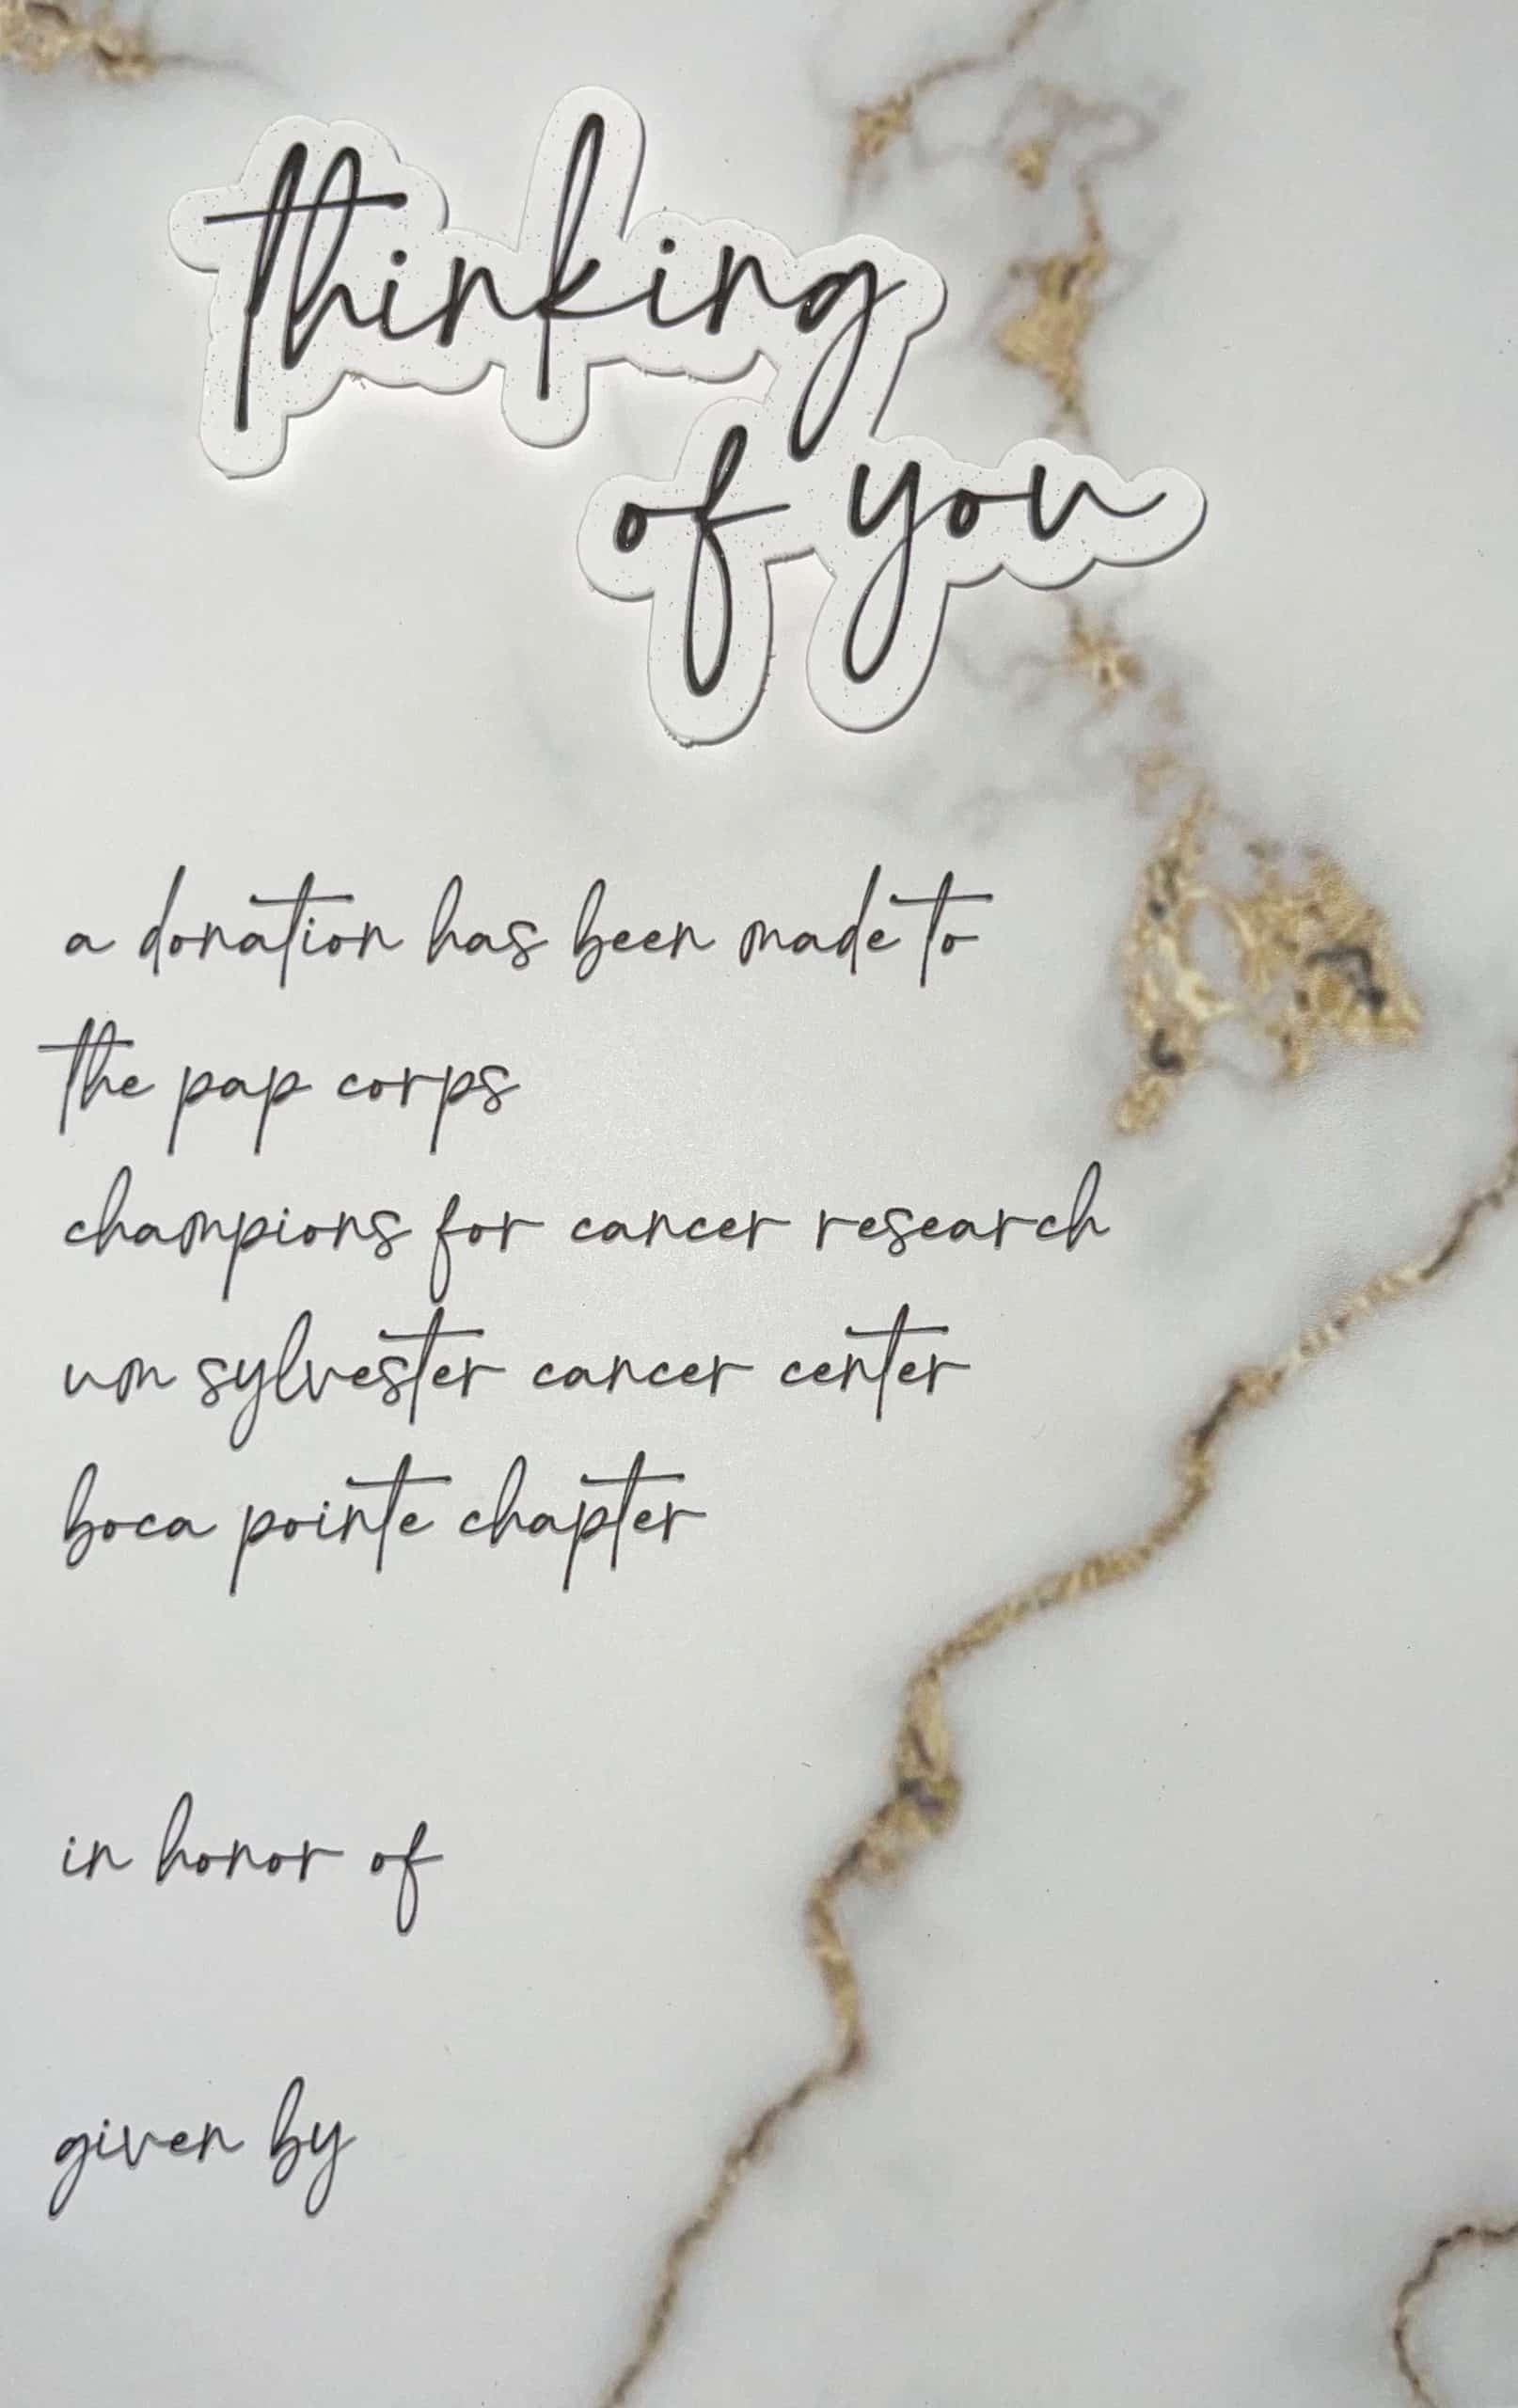 thinking
of you
a donation has been made to
the pap corps
champions for cancer research
um sylvester cancer center
boca pointe chapter
in honor of
given by